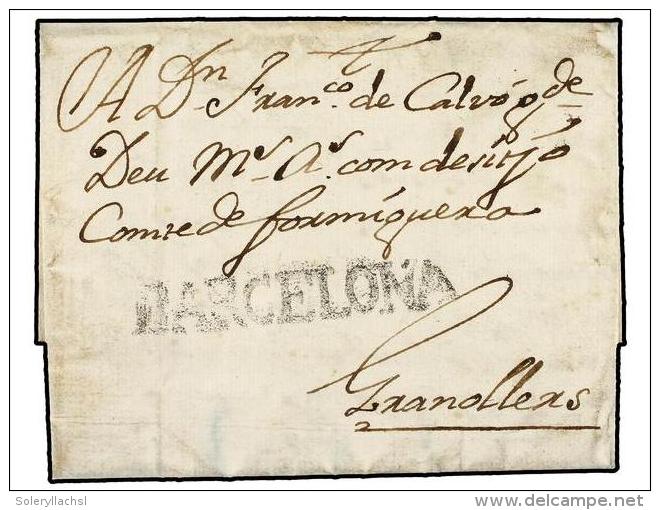 A Dn Franco. de Calvo, q de
Deu Ms. As. com desitjo
Comte de formiguera
BARCELONA
Granollers
Soleryllachsl
delcampe.net